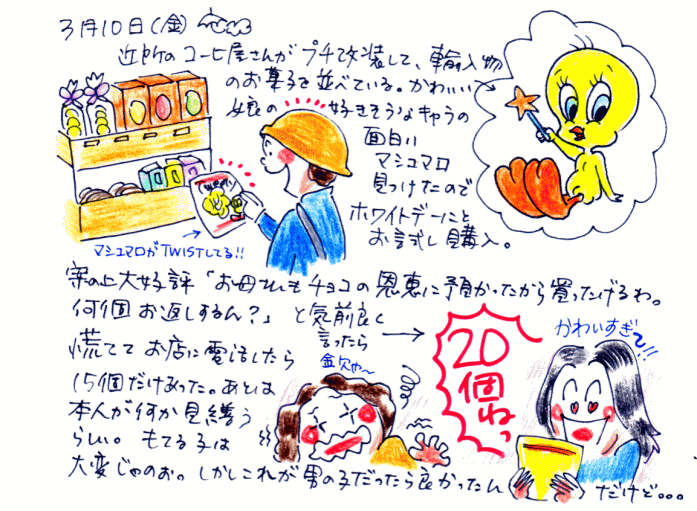 3月10日(金)
近所のコーヒ屋さんがプチ改装して、輸入物
のお菓子を並べている。かわいい
娘の好きそうなキャラの
面白い
マシュマロ
見つけたので
ホワイトデーにと
お試し購入。
Tweety
マシュマロがTWISTしてる!!
案の上大好評「お母さんもチョコの恩恵に預かったから買ったげるわ。
何個お返しするん?」と気前良く
言ったら
金欠や〜
20
個ねっ
かわいすぎ〜!!
慌ててお店に電話したら
15個だけあった。あとは
本人が何か見繕う
らしい。もてる子は
大変じゃのお。しかしこれが男の子だったら良かったん
だけど。。。